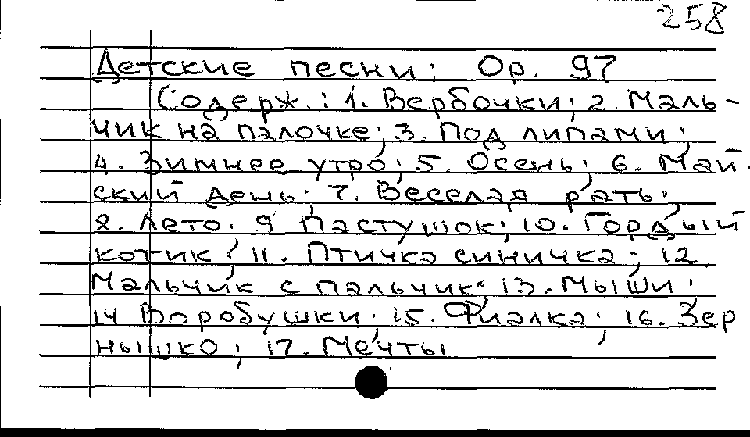 258
Детские песни: Ор. 97
Содерж.: 1. Вербочки; 2. Маль-
чик на палочке; 3. Под липами;
4. Зимнее утро; 5. Осень; 6. Май-
ский день; 7. Веселая рать;
8. Лето. 9 Пастушок; 10. Гордый
котик; 11. Птичка синичка; 12
Мальчик с пальчик; 13. Мыши;
14 Воробушки; 15. Фиалка; 16. Зер
нышко; 17. Мечты